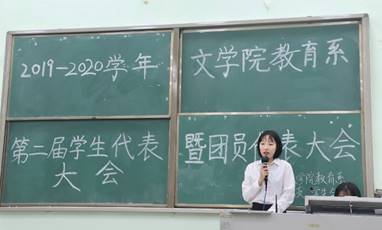 2019-2020学年
文学院教育系
第二届学生代表
大会
暨团员代表大会
学院教育系